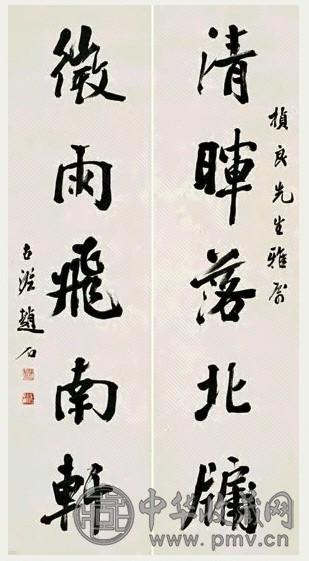 楨良先生雅屬
清暉落北牖
微雨飛南軒
古泥趙石
中华收藏网
www.pmv.cn